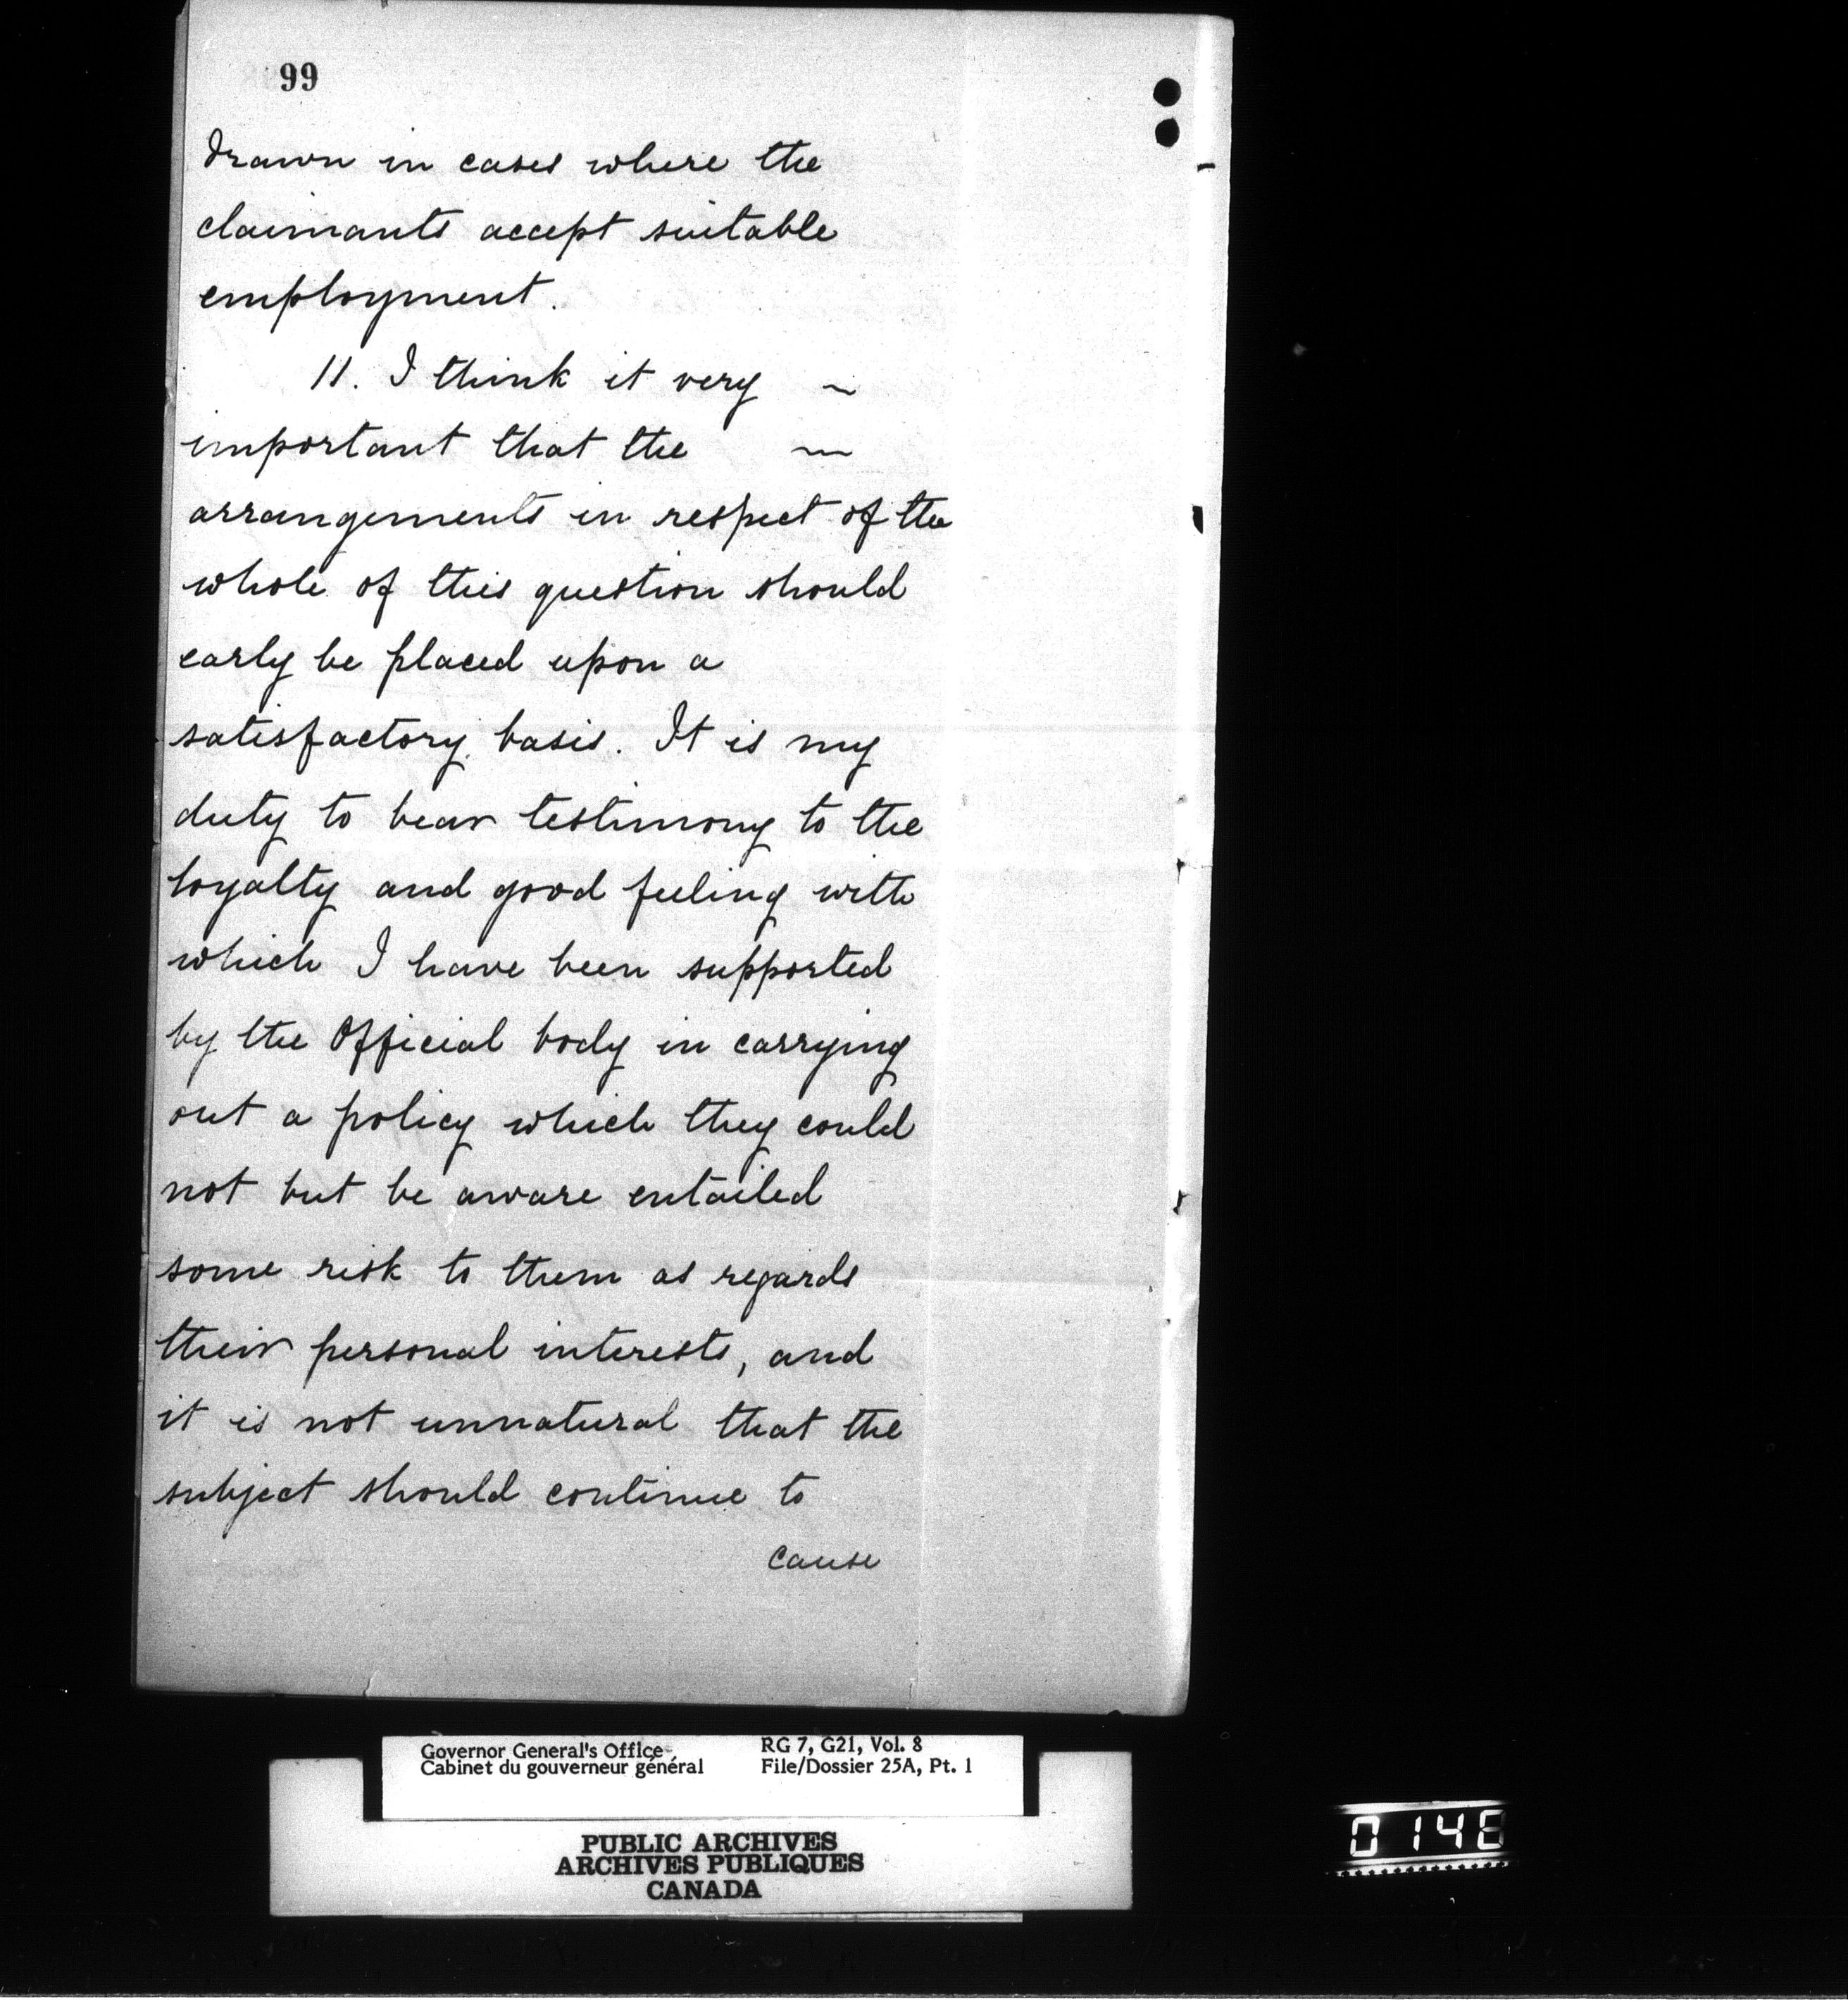 99
drawn in cases where the
claimants accept suitable
employment.
11. I think it very ~
important that the ~
arrangements in respect of the
whole of this question should
early be placed upon a
satisfactory basis. It is my
duty to bear testimony to the
loyalty and good feeling with
which I have been supported
by the Official body in carrying
out a policy which they could
not but be aware entailed
some risk to them as regards
their personal interests, and
it is not unnatural that the
subject should continue to
cause
Governor General's Office RG 7, G21, Vol. 8
Cabinet du gouverneur général File/Dossier 25A, Pt. 1
PUBLIC ARCHIVES
ARCHIVES PUBLIQUES
CANADA